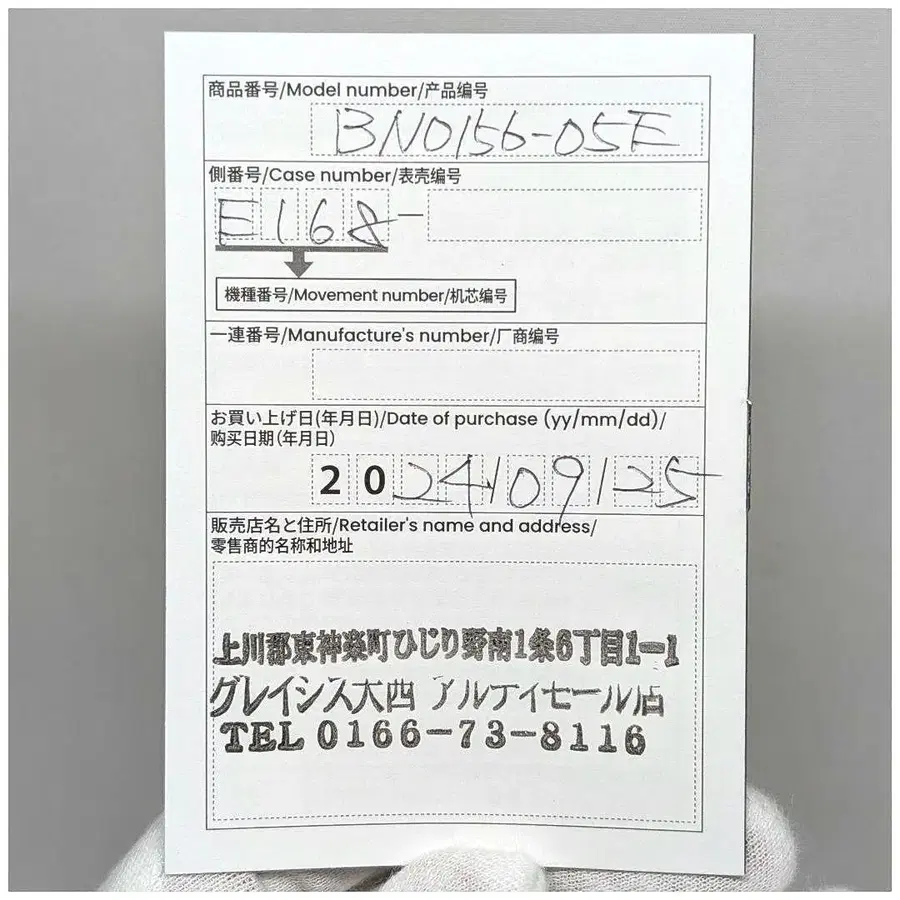 商品番号/Model number/产品编号
BN0156-05E
側番号/Case number/表壳编号
E168-
機種番号/Movement number/机芯编号
一連番号/Manufacture's number/厂商编号
お買い上げ日(年月日)/Date of purchase (yy/mm/dd)/
购买日期(年月日)
2024/09/25
販売店名と住所/Retailer's name and address/
零售商的名称和地址
上川郡東神楽町ひじり野南1条6丁目1-1
グレイシス大西 アルティモール店
TEL 0166-73-8116